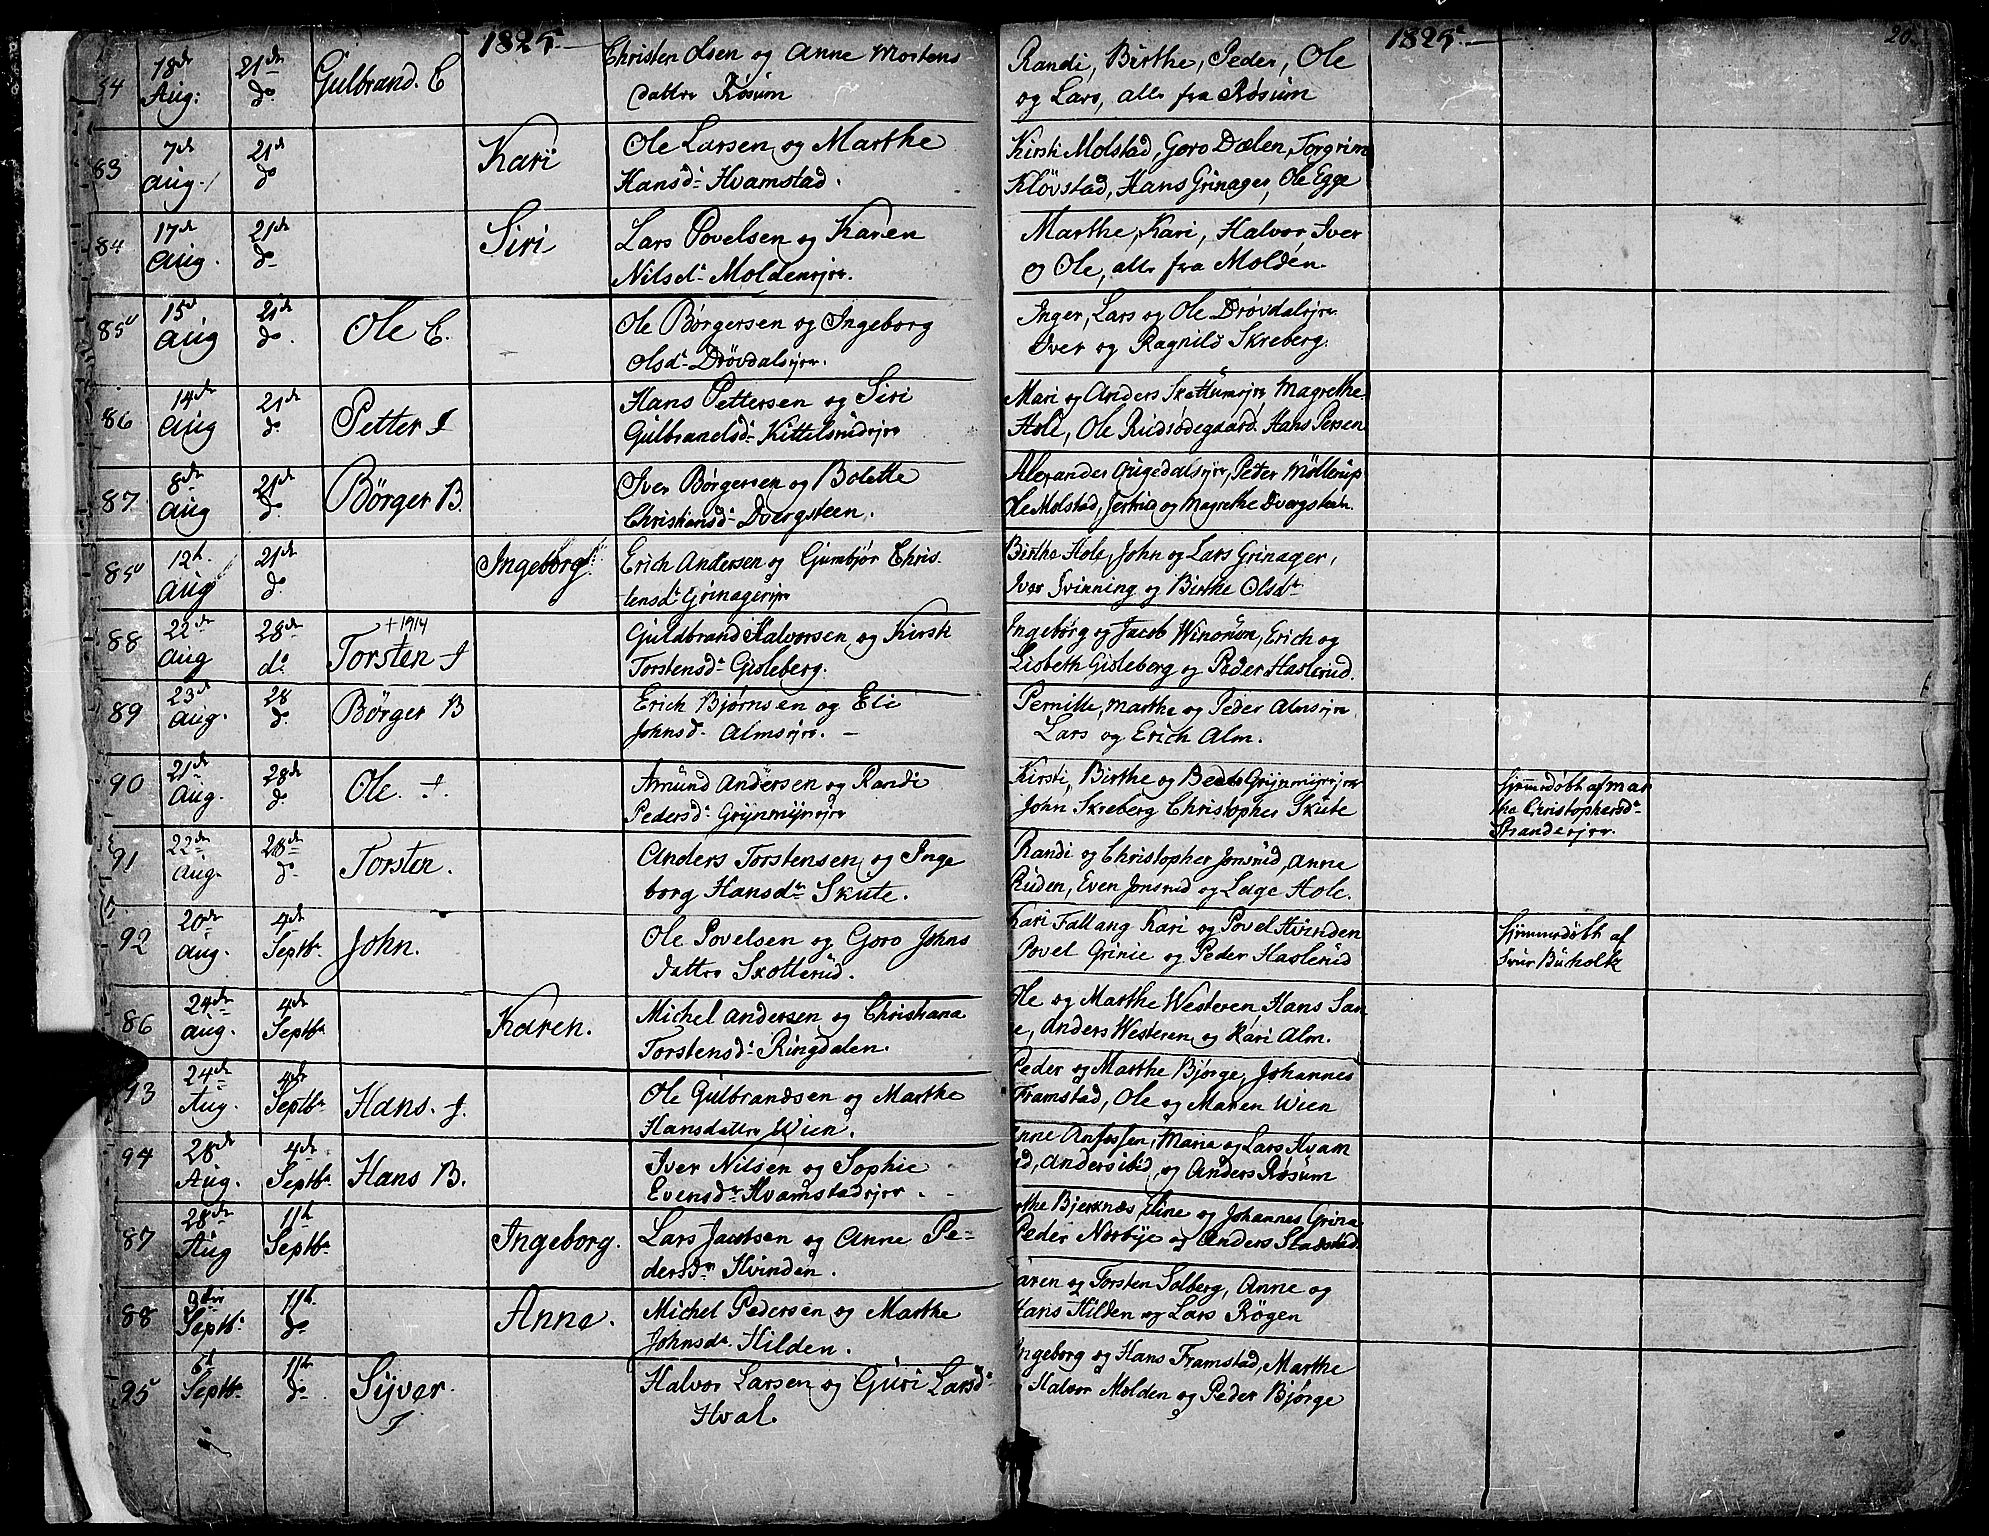 1825
1825
20.
84 18de Aug: 21de do Gulbrand. C Christen Olsen og Anne Mortens
datter Røsum
Randi, Birthe, Peder, Ole
og Lars, alle fra Røsum
83 7de Aug. 21de do Kari Ole Larsen og Marthe
Hansd. Hvamstad.
Kirsti Molstad, Goro Dælen, Torgrim
Kløvstad, Hans Grinager, Ole Egge
84 17de Aug. 21de do Siri Lars Povelsen og Karen
Nilsd. Moldenejer.
Marthe, Kari, Halvor Iver
og Ole, alle fra Molden.
85 15d Aug 21de do. Ole C. Ole Børgersen og Ingeborg
Olsd. Drøvdalsejer.
Inger, Lars og Ole Drøvdalsejer
Iver og Ragnild Skreberg.
86 14de Aug 21de do Petter I Hans Pettersen og Siri
Gulbrandsd. Kittelsrudejer
Mari og Anders Skattumsejer Magrethe
Hole, Ole Rudsødegaard. Hans Persen
87 8de Aug 21de do Børger B. Iver Børgersen og Bolette
Christiansd. Dvergsteen.
Alexander Augedalsejer, Peter Møllerup
Ole Molstad, Jertrud og Magrethe Dvergsteen.
85 12te Aug 21de do. Ingeborg Erich Andersen og Gumbjør Chris-
tensd. Grinagerejer
Birthe Hole, John og Lars Grinager,
Iver Svinning og Birthe Olsd.
88 22de Aug 28de do +1914
Torsten I Guldbrand Halvorsen og Kirsti
Torstensd. Gisleberg.
Ingeborg og Jacob Winorum, Erich og
Lisbeth Gisleberg og Peder Haslerud.
89 23de Aug. 28 do Børger B Erich Bjørnsen og Eli
Johnsd. Almsejer.
Pernille, Marthe og Peder Almsejer
Lars og Erich Alm.
90 21de Aug. 28de do Ole. I. Amund Andersen og Randi
Pedersd. Grynmyrejer
Kirsti, Birthe og Grynmyrejer
John Skreberg Christopher Skute
Hjemmedøbt af Mar
the Christophersd.
Strandeejer.
91 22de Aug. 28de do Torsten. Anders Torstensen og Inge
borg Hansdr. Skute.
Randi og Christopher Jonsrud, Anne
Ruden, Even Jonsrud og Lage Hole.
92 20de Aug. 4de Septbr. John. Ole Povelsen og Goro Johns
datter Skotterud.
Kari Fallang Kari og Povel Hvinden
Povel Grinie og Peder Haslerud
Hjemmedøbt af
Iver Buholtz
86 24de Aug. 4de Septbr Karen. Michel Andersen og Christiana
Torstensd. Ringdalen.
Ole og Marthe Westeren, Hans San
e, Anders Westeren og Kari Alm.
93 24de Aug. 4de Septbr Hans. I. Ole Gulbrandsen og Marthe
Hansdatter Wien.
Peder og Marthe Bjørge, Johannes
Framstad, Ole og Maren Wien
94 28de Aug. 4de Septbr Hans B. Iver Nilsen og Sophie
Evensdr. Hvamstadejer.
Anne Maria og Lars Hvam
Anders ibid, og Anders Røsum
87 28de Aug 11te Septbr Ingeborg. Lars Jacobsen og Anne Pe-
dersdr. Hvinden.
Bjerknæs Eline og Johannes Grina
Peder Norbye og Anders Stadstad
88 9de Septbr 11te do Anne. Michel Pedersen og Marthe
Johnsdr. Hilden.
Karen og Torsten Solberg, Anne og
Hans Hilden og Lars Røgen
95 6te Septbr. 11te do Syver.
I Halvor Larsen og Guri Larsd.
Hval.
Ingeborg og Hans Framstad, Marthe
Halvor Molden og Peder Bjørge